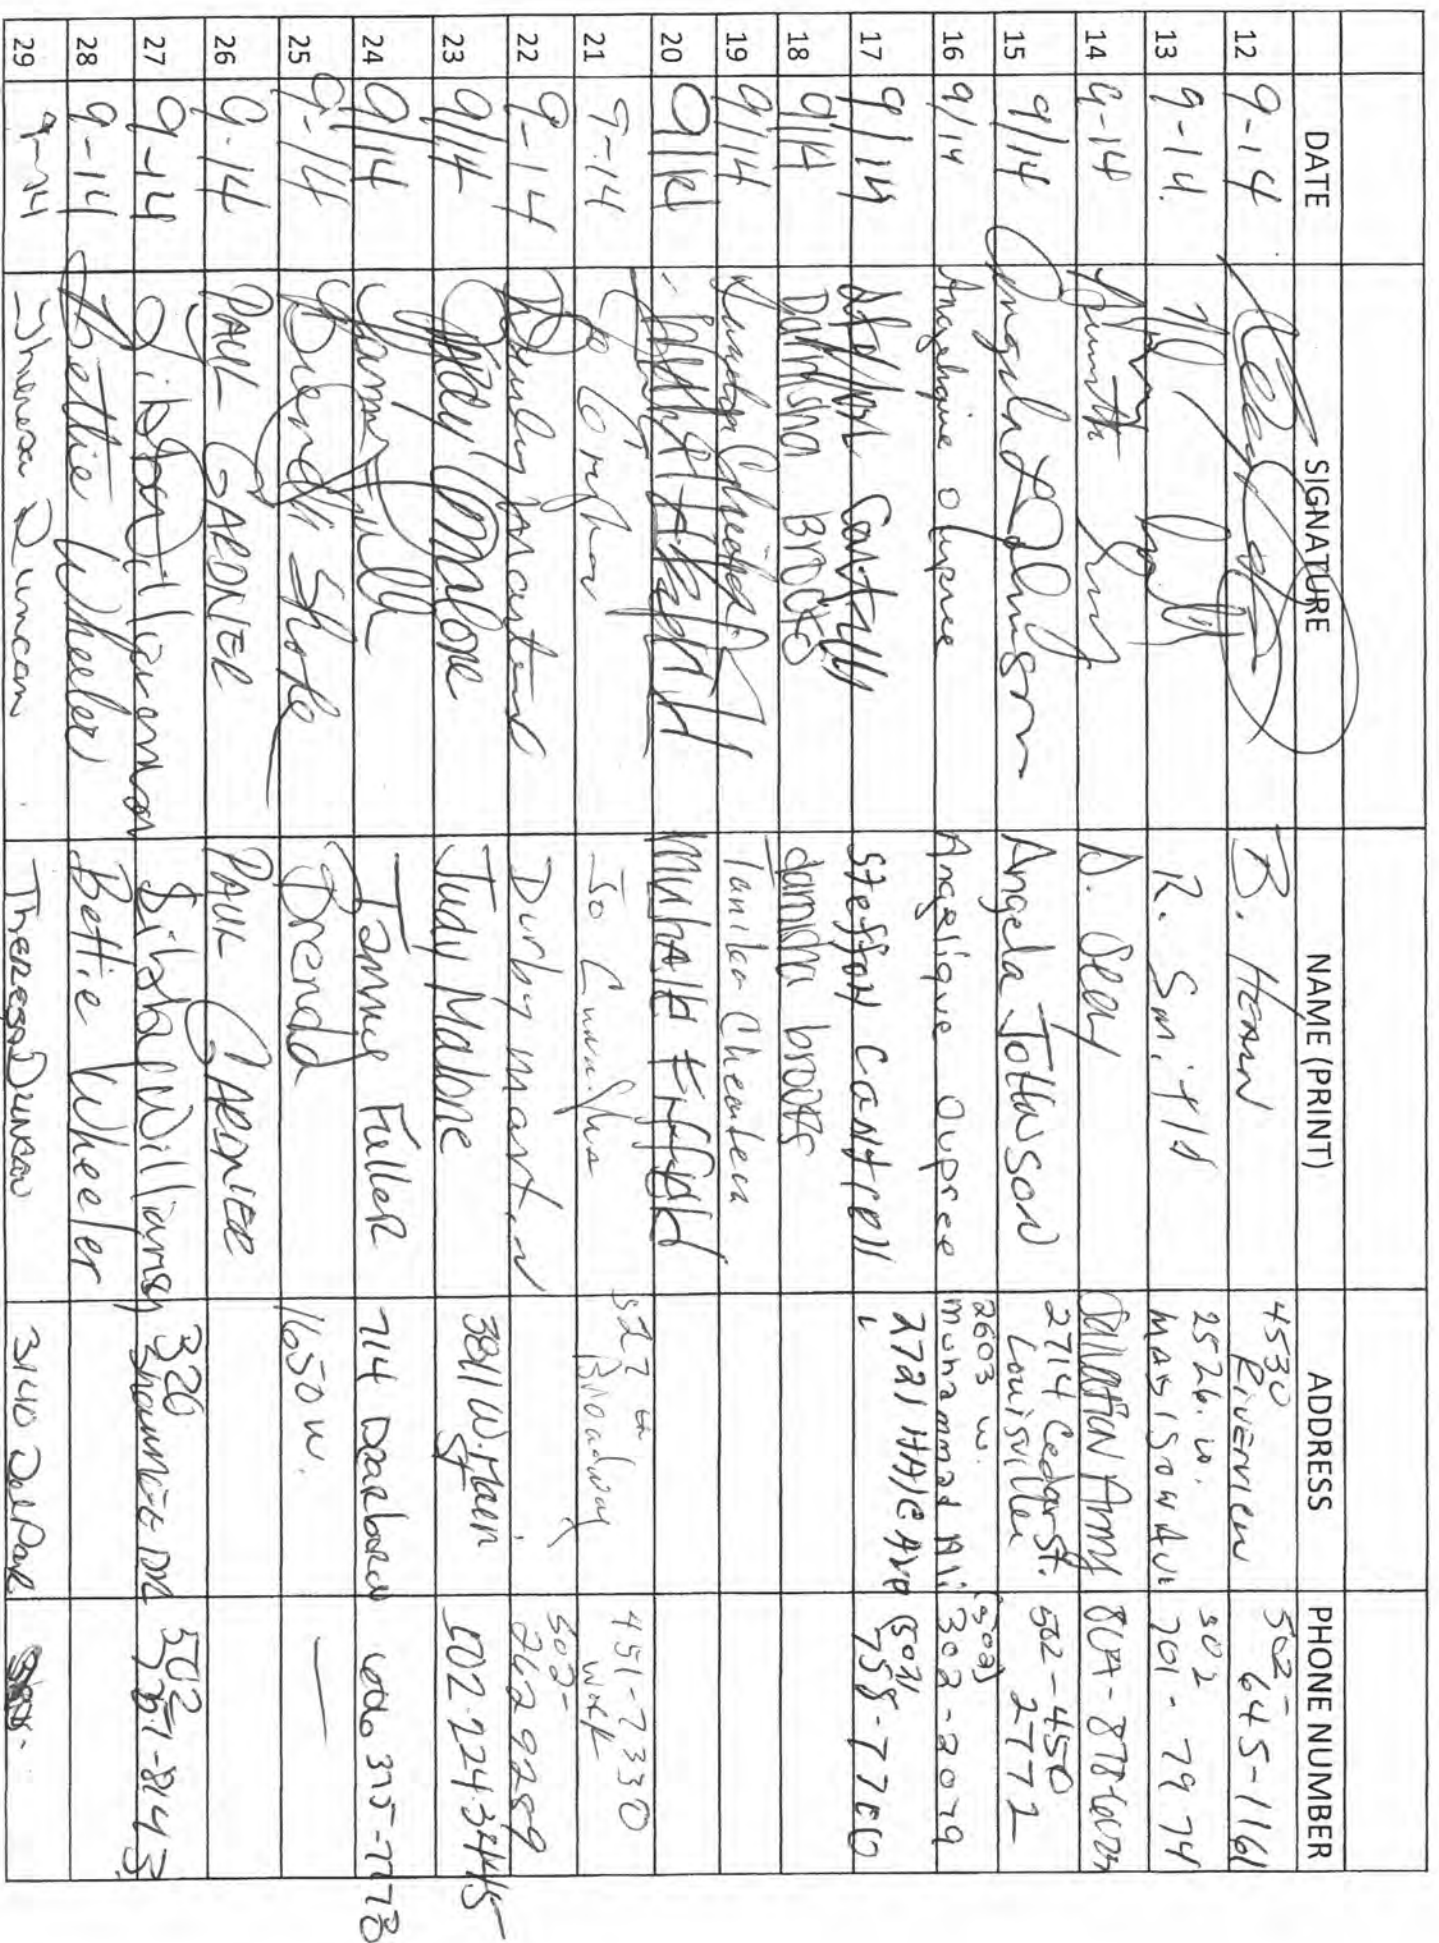 DATE SIGNATURE NAME (PRINT) ADDRESS PHONE NUMBER
12 9-14 B. HEARN 4530 RIVERVIEW 502- 645-1161
13 9-14 R. Smith 2526 w. MADISON AVE 502 701-7974
14 9-14 D. Seay SALVATION Army
15 9/14 Angela Johnson Angela JOHNSON 2714 Cedar St. Louisville 502-450 2772
16 9/14 Angelique Dupree Angelique Dupree 2603 w. muhammad Ali (502) 302-2029
17 9/14 Steffon Cantrell Steffon Cantrell 2721 HAlE AVe (502) 758-7760
18 9/14 Damisha Brooks damisha brooks
19 9/14
20 9/14
21 9-14 Jo 527 Broadway 451-7330 work
22 9-14 Durby Martin 502- 2629289
23 9/14 Judy Malone Judy Malone 3811 W. Main St 502.224.3445
24 9/14 Fuller 714 Dearborn 375-7778
25 9-14 Brenda Brenda 1650 w. —
26 9-14 PAUL GARDNER PAUL GARDNER
27 9-14 320 Shawnee DR 502
28 9-14 Bettie Wheeler Bettie Wheeler
29 9-14 Theresa Duncan Theresa Duncan 3140 Del Park